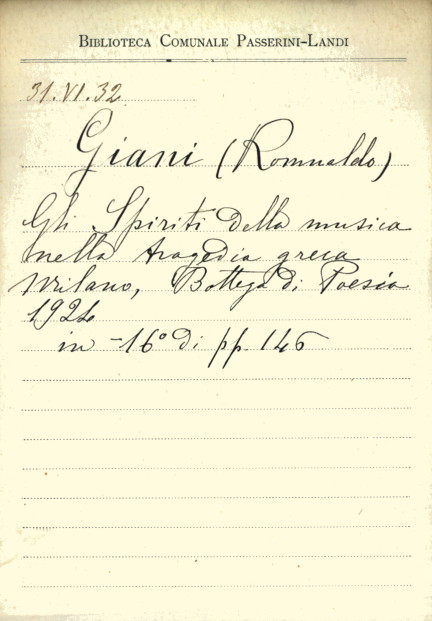 Biblioteca Comunale Passerini-Landi
31.VI.32
Giani (Romualdo)
Gli Spiriti della musica
nella tragedia greca
Milano, Bottega di Poesia
1924
in -16° di pp. 146